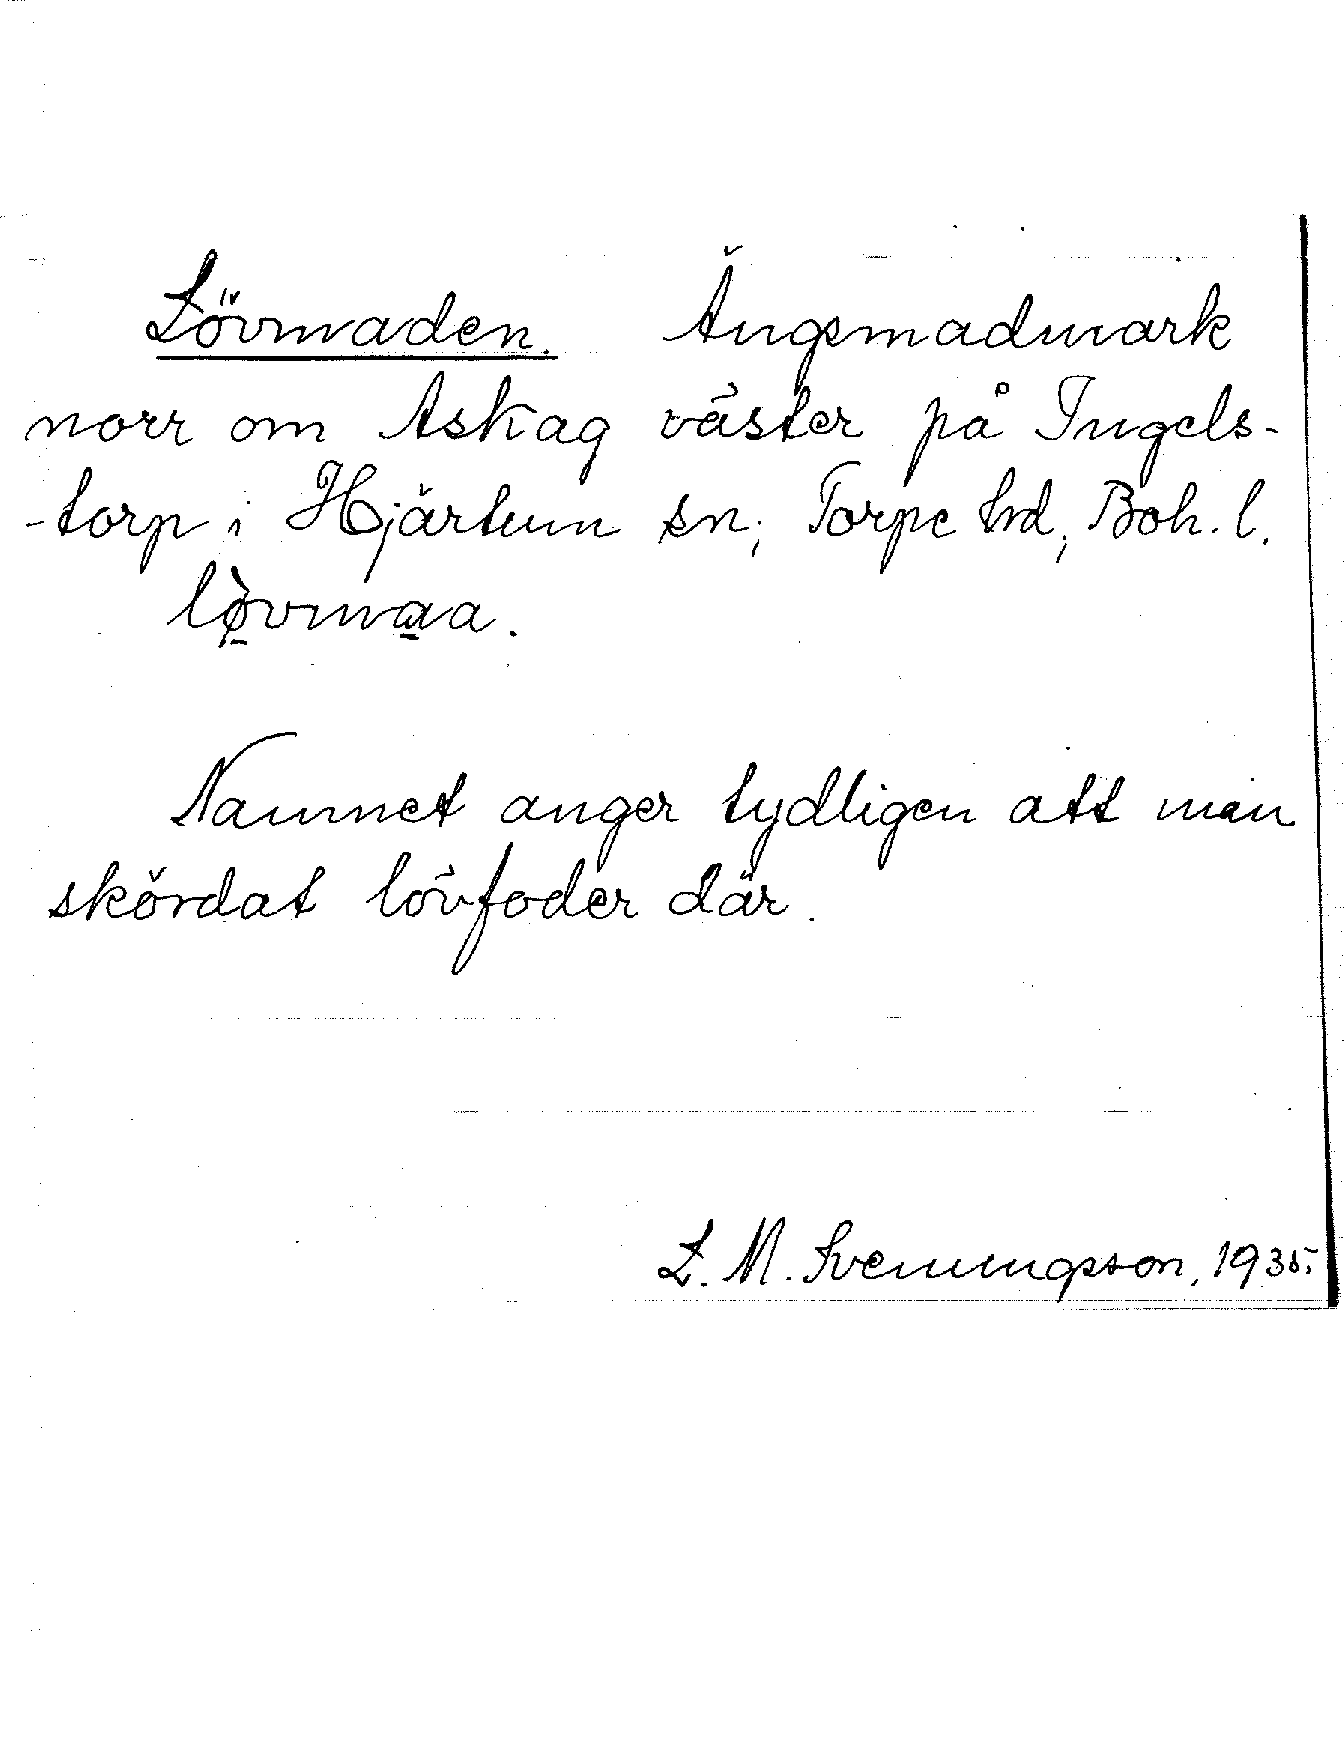 Lövmaden. Ängsmadmark
norr om Askag väster på Ingels-
-torp i Hjärtum sn, Torpe hd, Boh. l.
lø̠̀vma̠a.
Namnet anger tydligen att man
skördat lövfoder där.
L. M. Svenungsson, 1935.